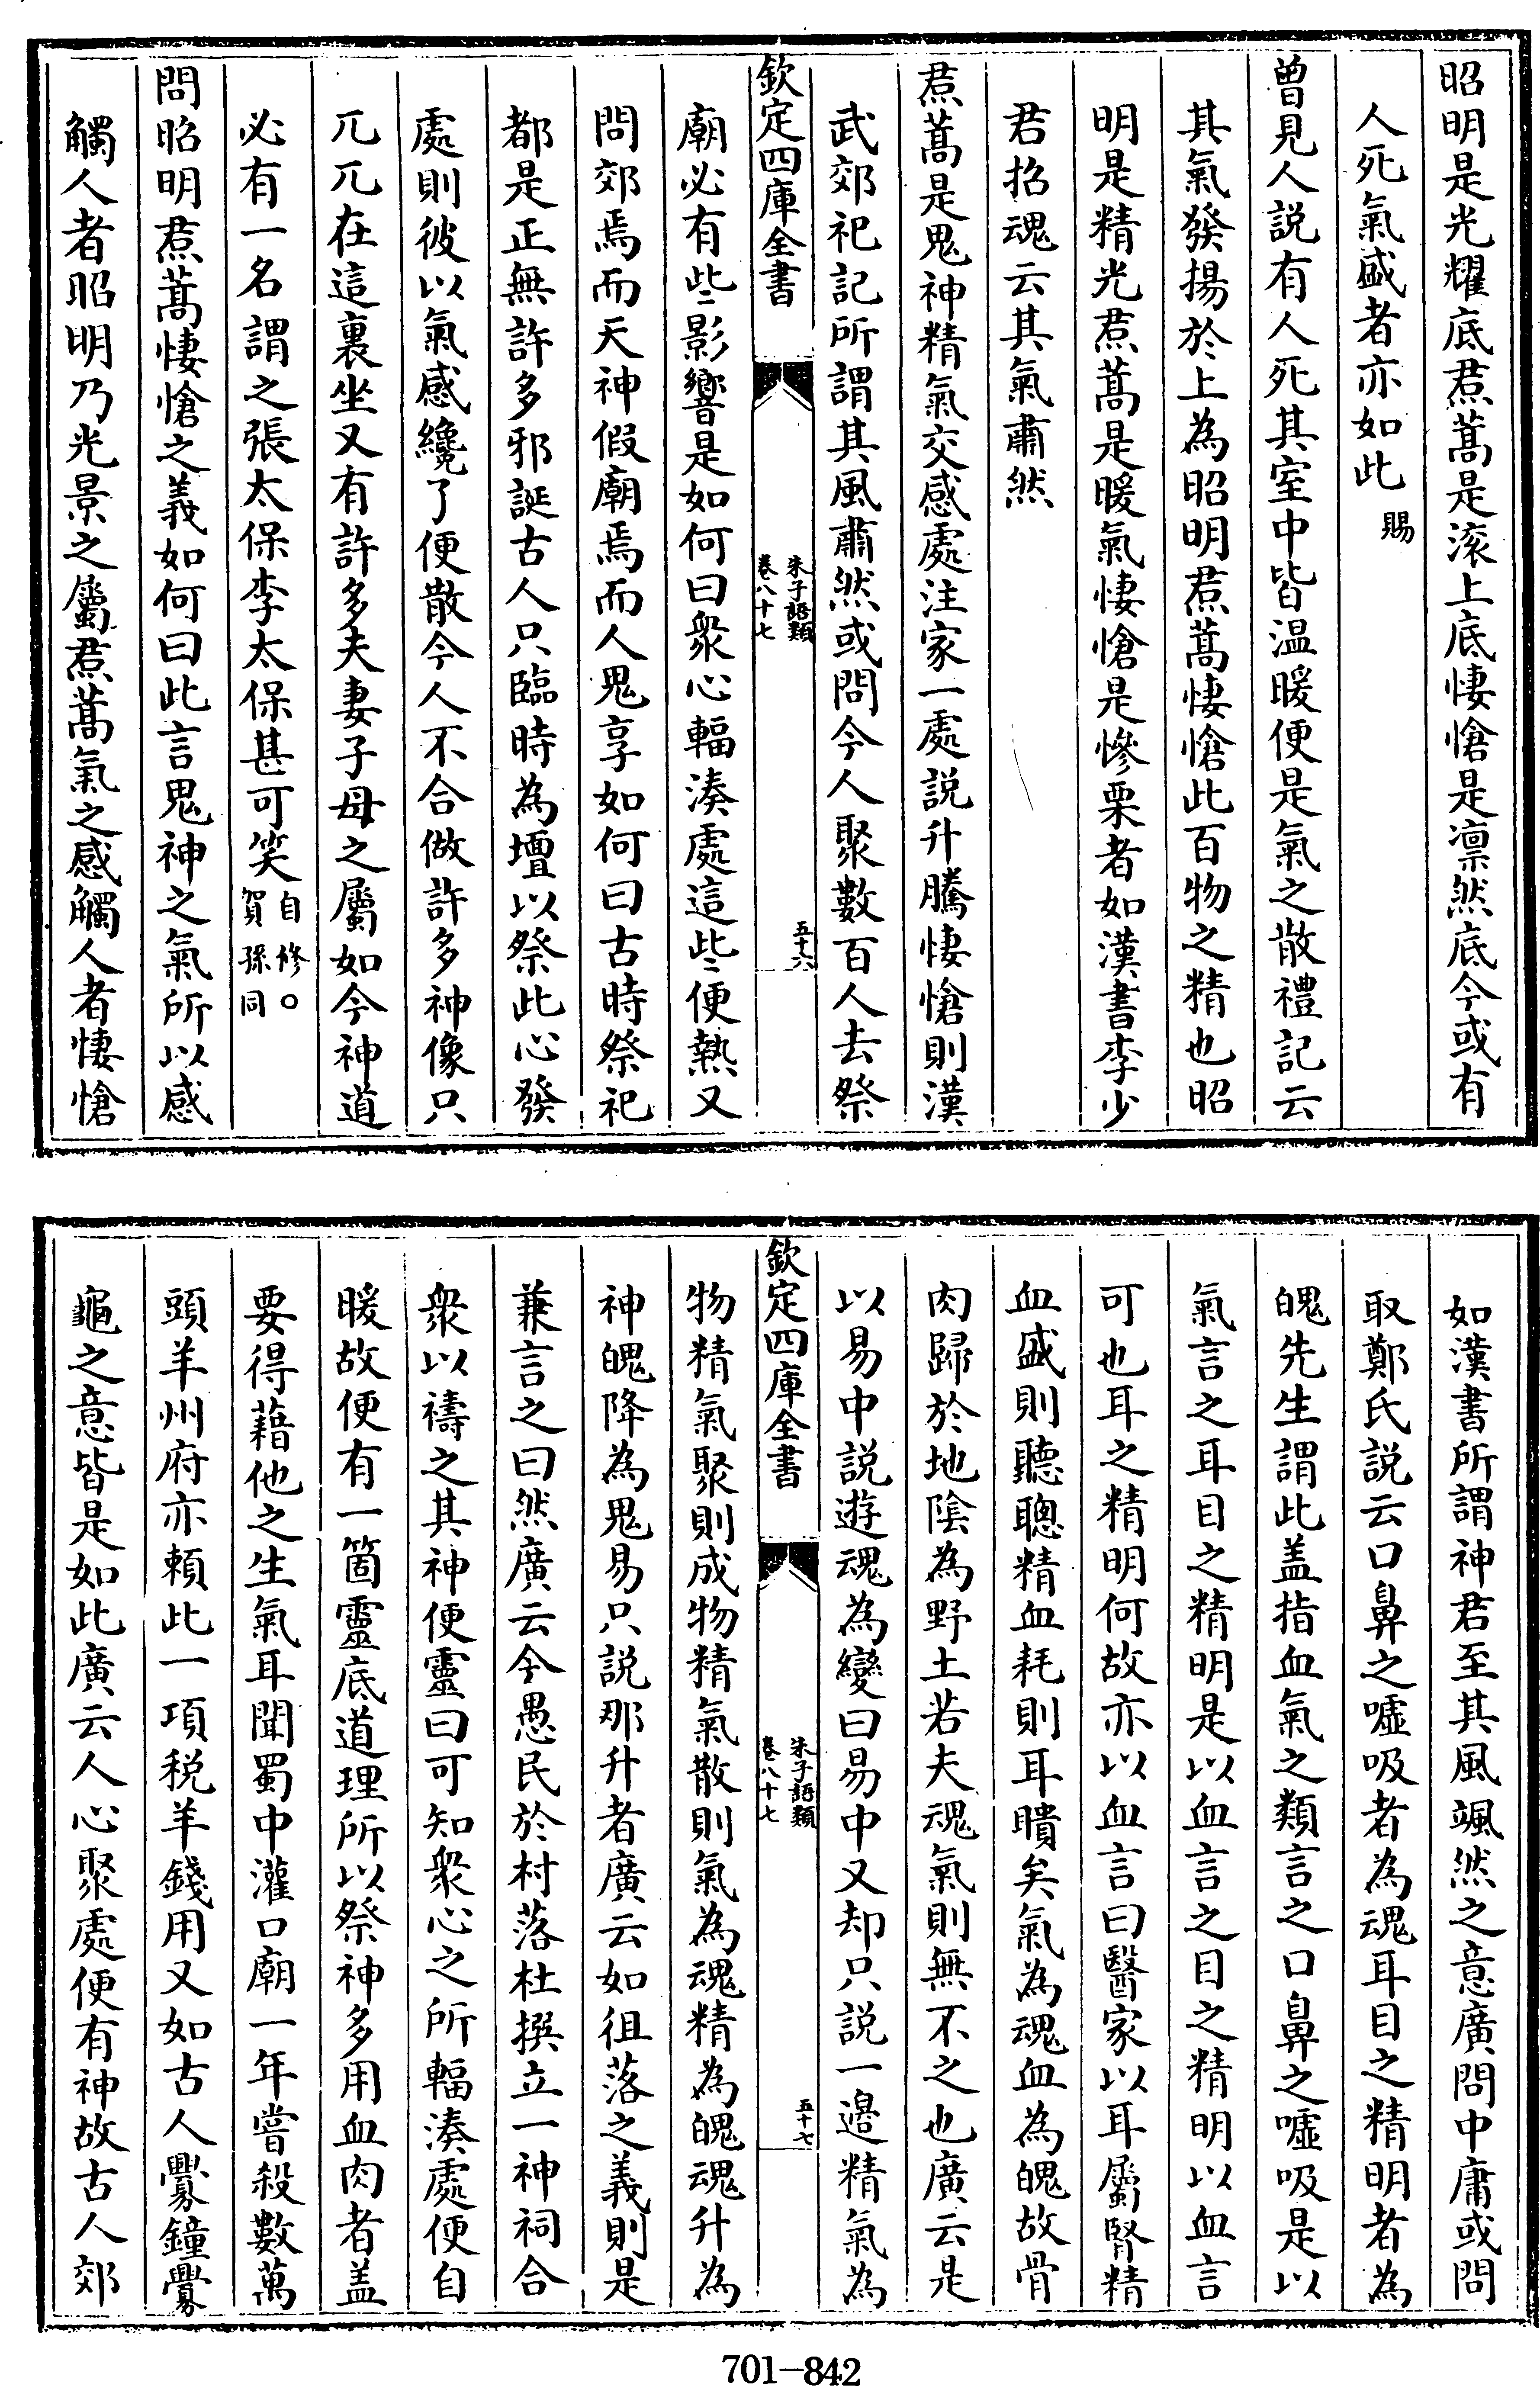 昭明是光耀底焄蒿是滚上底悽愴是凛然底今或有
人死氣盛者亦如此賜
曾見人説有人死其室中皆温暖便是氣之散禮記云
其氣發揚於上為昭明焄蒿悽愴此百物之精也昭
明是精光焄蒿是暖氣悽愴是慘栗者如漢書李少
君招魂云其氣肅然
焄蒿是鬼神精氣交感處注家一處説升騰悽愴則漢
武郊祀記所謂其風肅然或問今人聚數百人去祭
欽定四庫全書
朱子語類
卷八十七
五十六
廟必有些影響是如何曰衆心輻湊處這些便熱又
問郊焉而天神假廟焉而人鬼享如何曰古時祭祀
都是正無許多邪誕古人只臨時為壇以祭此心發
處則彼以氣感纔了便散今人不合做許多神像只
兀兀在這裏坐又有許多夫妻子母之屬如今神道
必有一名謂之張太保李太保甚可笑自修○賀孫同
問昭明焄蒿悽愴之義如何曰此言鬼神之氣所以感
觸人者昭明乃光景之屬焄蒿氣之感觸人者悽愴
如漢書所謂神君至其風颯然之意廣問中庸或問
取鄭氏説云口鼻之噓吸者為魂耳目之精明者為
魄先生謂此盖指血氣之類言之口鼻之噓吸是以
氣言之耳目之精明是以血言之目之精明以血言
可也耳之精明何故亦以血言曰醫家以耳屬腎精
血盛則聽聰精血耗則耳聵矣氣為魂血為魄故骨
肉歸於地陰為野土若夫魂氣則無不之也廣云是
以易中説遊魂為變曰易中又却只説一邉精氣為
欽定四庫全書
朱子語類
卷八十七
五十七
物精氣聚則成物精氣散則氣為魂精為魄魂升為
神魄降為鬼易只説那升者廣云如徂落之義則是
兼言之曰然廣云今愚民於村落杜撰立一神祠合
衆以禱之其神便靈曰可知衆心之所輻湊處便自
暖故便有一箇靈底道理所以祭神多用血肉者盖
要得藉他之生氣耳聞蜀中灌口廟一年嘗殺數萬
頭羊州府亦頼此一項税羊錢用又如古人釁鐘釁
龜之意皆是如此廣云人心聚處便有神故古人郊
701-842